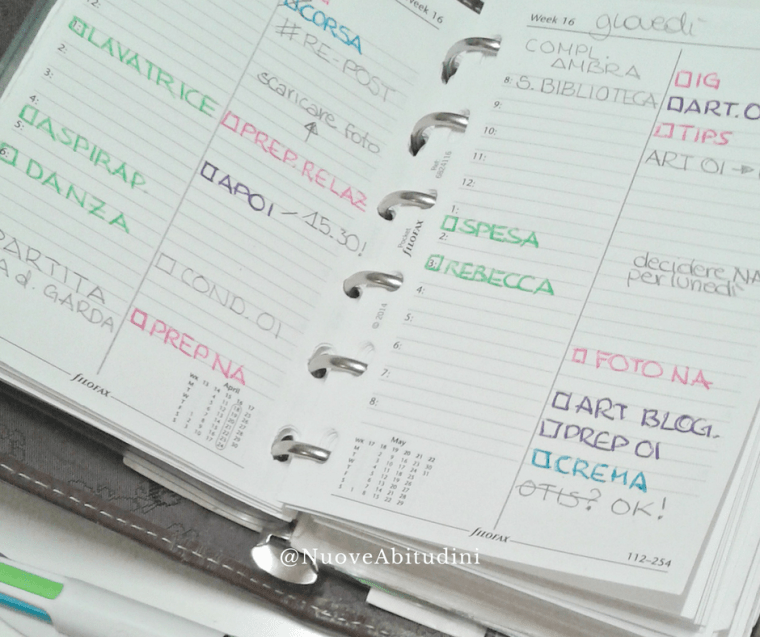 Week 16
CORSA
#RE-POST
scaricare foto
LAVATRICE
PREP. RELAZ
ASPIRAP.
APOI - 15.30!
DANZA
COND. OI
PARTITA
A d. GARDA
PREP NA
FILOFAX
April
© 2014
Pocket FILOFAX
Week 16 giovedì
COMPL.
AMBRA
8: S. BIBLIOTECA
9:
10:
11:
12:
1:
SPESA
2:
3: REBECCA
4:
5:
6:
7:
8:
May
IG
ART. O
TIPS
ART OI
decidere NA
per lunedì
FOTO NA
ART BLOG.
PREP OI
CREMA
OTIS? OK!
FILOFAX
112-254
@NuoveAbitudini